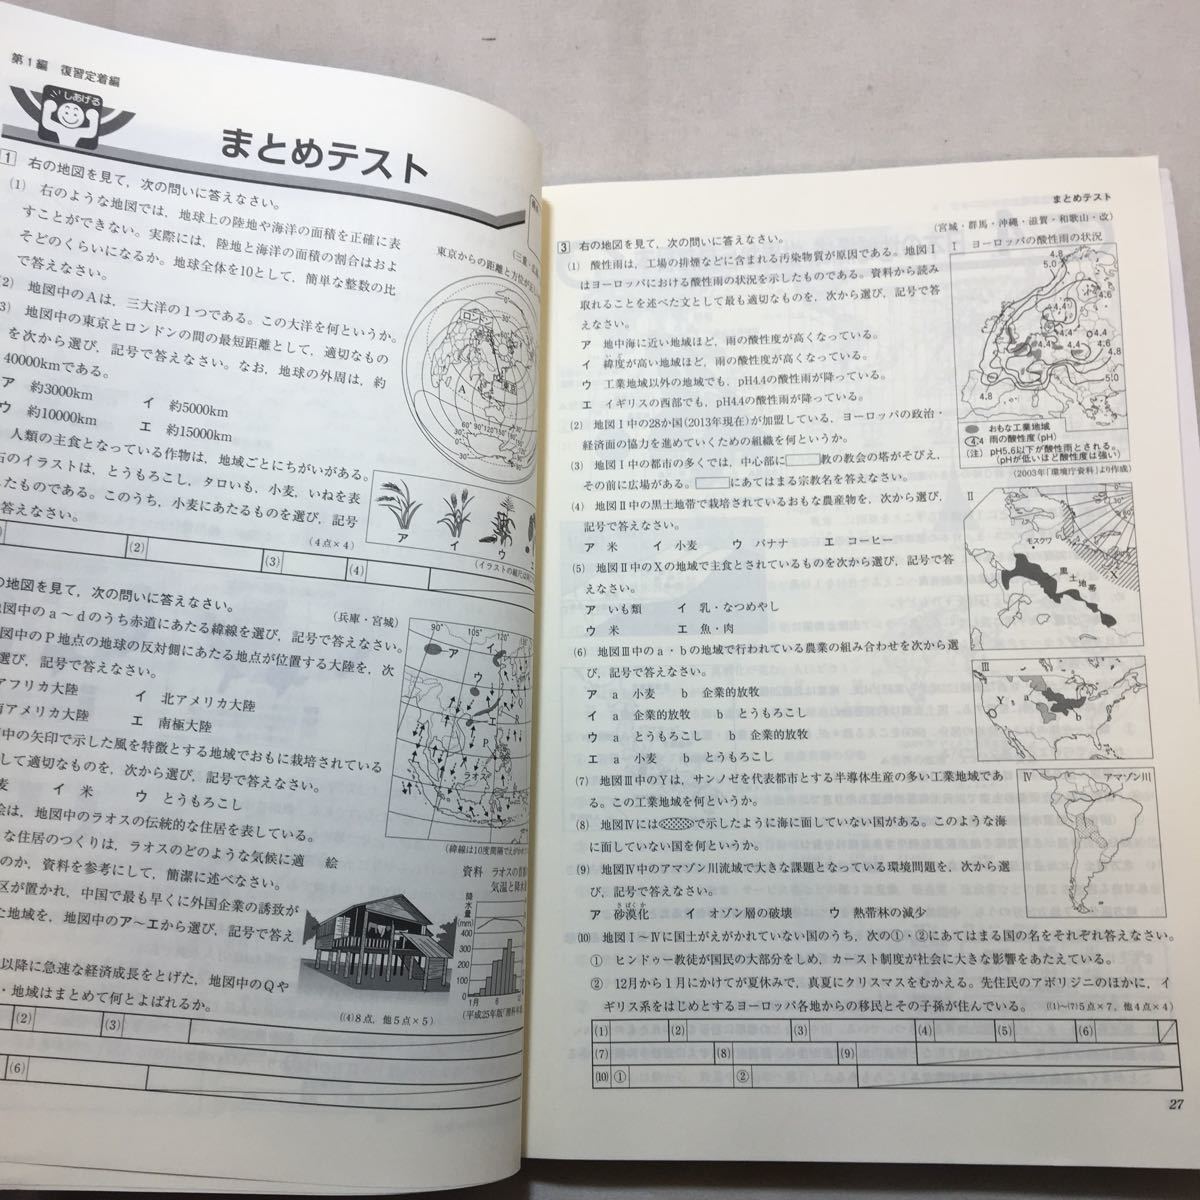 第1編 復習定着編
しあげる
まとめテスト
1 右の地図を見て，次の問いに答えなさい。
(1) 右のような地図では，地球上の陸地や海洋の面積を正確に表
すことができない。実際には，陸地と海洋の面積の割合はおよ
そどのくらいになるか。地球全体を10として，簡単な整数の比
で答えなさい。
2) 地図中のAは，三大洋の1つである。この大洋を何というか。
3) 地図中の東京とロンドンの間の最短距離として，適切なもの
を次から選び，記号で答えなさい。なお，地球の外周は，約
40000kmである。
ア 約3000km イ 約5000km
ウ 約10000km エ 約15000km
人類の主食となっている作物は，地域ごとにちがいがある。
石のイラストは，とうもろこし，タロいも，小麦，いねを表
したものである。このうち，小麦にあたるものを選び，記号
答えなさい。
(4点×4)
東京からの距離と方位が
ロンドン
東京
A
ア イ ウ
(イラストの縮尺は
(2) (3) (4)
の地図を見て，次の問いに答えなさい。
(兵庫・宮城)
地図中のa～dのうち赤道にあたる緯線を選び，記号で答えなさい。
図中のP地点の地球の反対側にあたる地点が位置する大陸を，次
選び，記号で答えなさい。
アフリカ大陸 イ 北アメリカ大陸
南アメリカ大陸 エ 南極大陸
中の矢印で示した風を特徴とする地域でおもに栽培されている
して適切なものを，次から選び，記号で答えなさい。
麦 イ 米 ウ とうもろこし
絵は，地図中のラオスの伝統的な住居を表している。
な住居のつくりは，ラオスのどのような気候に適
のか，資料を参考にして，簡潔に述べなさい。
区が置かれ，中国で最も早くに外国企業の誘致が
た地域を，地図中のア～エから選び，記号で答え
以降に急速な経済成長をとげた，地図中のQや
・地域はまとめて何とよばれるか。
((4)8点，他5点×5)
90° 105° 120°
ア
ウ
エ
P
ラオス
(緯線は10度間隔でえがか
絵
資料 ラオスの首都
気温と降水
降水量
(mm)
400
300
200
100
0
1月 6 12
(平成25年版「理科年
(2) (3)
(6)
まとめテスト
(宮城・群馬・沖縄・滋賀・和歌山・改)
3 右の地図を見て，次の問いに答えなさい。
(1) 酸性雨は，工場の排煙などに含まれる汚染物質が原因である。地図Ⅰ
はヨーロッパにおける酸性雨の状況を示したものである。資料から読み
取れることを述べた文として最も適切なものを，次から選び，記号で答
えなさい。
ア 地中海に近い地域ほど，雨の酸性度が高くなっている。
イ 緯度が高い地域ほど，雨の酸性度が高くなっている。
ウ 工業地域以外の地域でも，pH4.4の酸性雨が降っている。
エ イギリスの西部でも，pH4.4の酸性雨が降っている。
(2) 地図Ⅰ中の28か国(2013年現在)が加盟している，ヨーロッパの政治・
経済面の協力を進めていくための組織を何というか。
(3) 地図Ⅰ中の都市の多くでは，中心部に教の教会の塔がそびえ，
その前に広場がある。にあてはまる宗教名を答えなさい。
(4) 地図Ⅱ中の黒土地帯で栽培されているおもな農産物を，次から選び，
記号で答えなさい。
ア 米 イ 小麦 ウ バナナ エ コーヒー
(5) 地図Ⅱ中のXの地域で主食とされているものを次から選び，記号で答
えなさい。
ア いも類 イ 乳・なつめやし
ウ 米 エ 魚・肉
(6) 地図Ⅲ中のa・bの地域で行われている農業の組み合わせを次から選
び，記号で答えなさい。
ア a 小麦 b 企業的放牧
イ a 企業的放牧 b とうもろこし
ウ a とうもろこし b 企業的放牧
エ a 小麦 b とうもろこし
(7) 地図Ⅲ中のYは，サンノゼを代表都市とする半導体生産の多い工業地域であ
る。この工業地域を何というか。
(8) 地図Ⅳにはで示したように海に面していない国がある。このような海
に面していない国を何というか。
(9) 地図Ⅳ中のアマゾン川流域で大きな課題となっている環境問題を，次から選
び，記号で答えなさい。
ア 砂漠化 イ オゾン層の破壊 ウ 熱帯林の減少
さばくか
(10) 地図Ⅰ～Ⅳに国土がえがかれていない国のうち，次の①・②にあてはまる国の名をそれぞれ答えなさい。
① ヒンドゥー教徒が国民の大部分をしめ，カースト制度が社会に大きな影響をあたえている。
② 12月から1月にかけてが夏休みで，真夏にクリスマスをむかえる。先住民のアボリジニのほかに，イ
ギリス系をはじめとするヨーロッパ各地からの移民とその子孫が住んでいる。 ((1)～(7)5点×7，他4点×4)
Ⅰ ヨーロッパの酸性雨の状況
おもな工業地域
4.4 雨の酸性度(pH)
(注) pH5.6以下が酸性雨とされる。
(pHが低いほど酸性度は強い)
(2003年「環境庁資料」より作成)
Ⅱ
モスクワ
黒土地帯
Ⅲ
Y a b
Ⅳ アマゾン川
(1) (2) (3) (4) (5) (6)
(7) (8) (9)
(10) ① ②
27